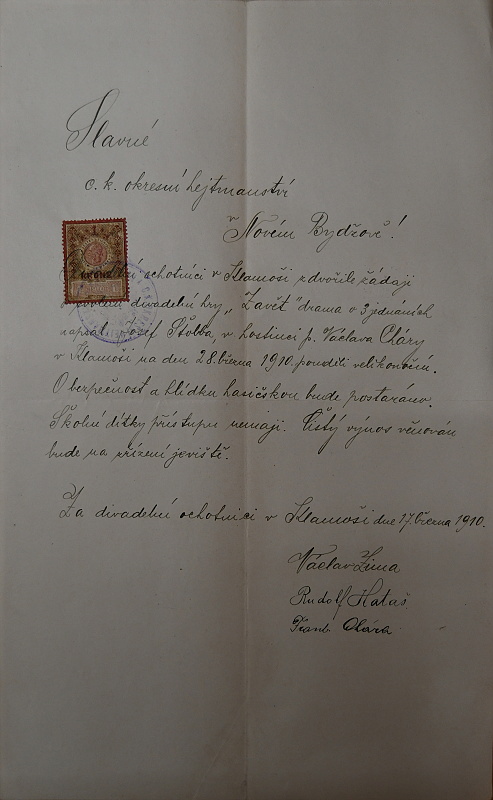 Slavné
c. k. okresní hejtmanství
v
Novém Bydžově!
ochotníci v Klamoši zdvořile žádají
divadelní hry „Závěť" drama o 3 jednáních
napsal Josef Štolba, v hostinci p. Václava Cháry
v Klamoši na den 28. března 1910. pondělí velikonoční.
O bezpečnost a hlídku hasičskou bude postaráno.
Školní dítky přístupu nemají. Čistý výnos věnován
bude na zřízení jeviště.
Za divadelní ochotníci v Klamoši dne 17. března 1910.
Václav Zima
Rudolf Hataš
Frant. Chára